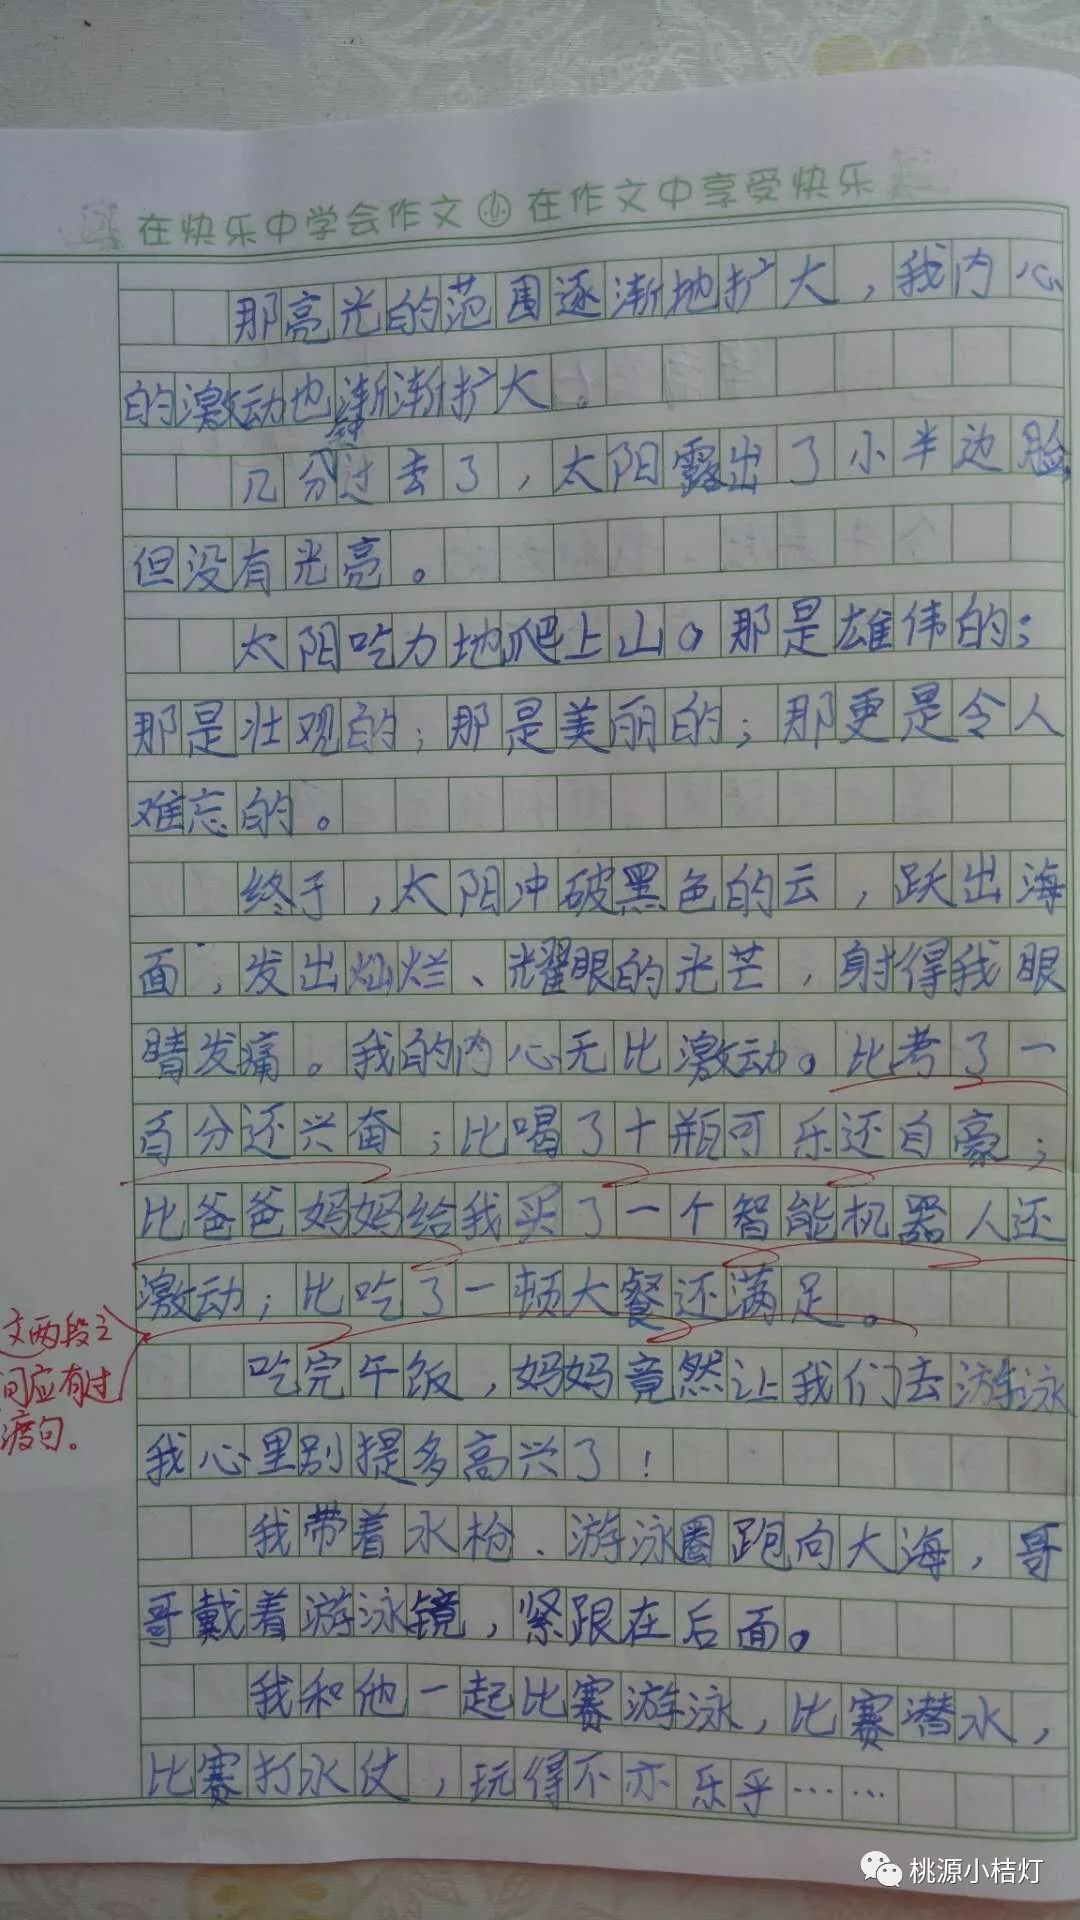 在快乐中学会作文 在作文中享受快乐
那亮光的范围逐渐地扩大，我内心
的激动也渐渐扩大。
几分钟过去了，太阳露出了小半边脸，
但没有光亮。
太阳吃力地爬上山。那是雄伟的；
那是壮观的；那是美丽的；那更是令人
难忘的。
终于，太阳冲破黑色的云，跃出海
面，发出灿烂、耀眼的光芒，射得我眼
睛发痛。我的内心无比激动。比考了一
百分还兴奋；比喝了十瓶可乐还自豪；
比爸爸妈妈给我买了一个智能机器人还
激动；比吃了一顿大餐还满足。
文两段之
间应有过
渡句。
吃完午饭，妈妈竟然让我们去游泳
我心里别提多高兴了！
我带着水枪、游泳圈跑向大海，哥
哥戴着游泳镜，紧跟在后面。
我和他一起比赛游泳，比赛潜水，
比赛打水仗，玩得不亦乐乎……
桃源小桔灯